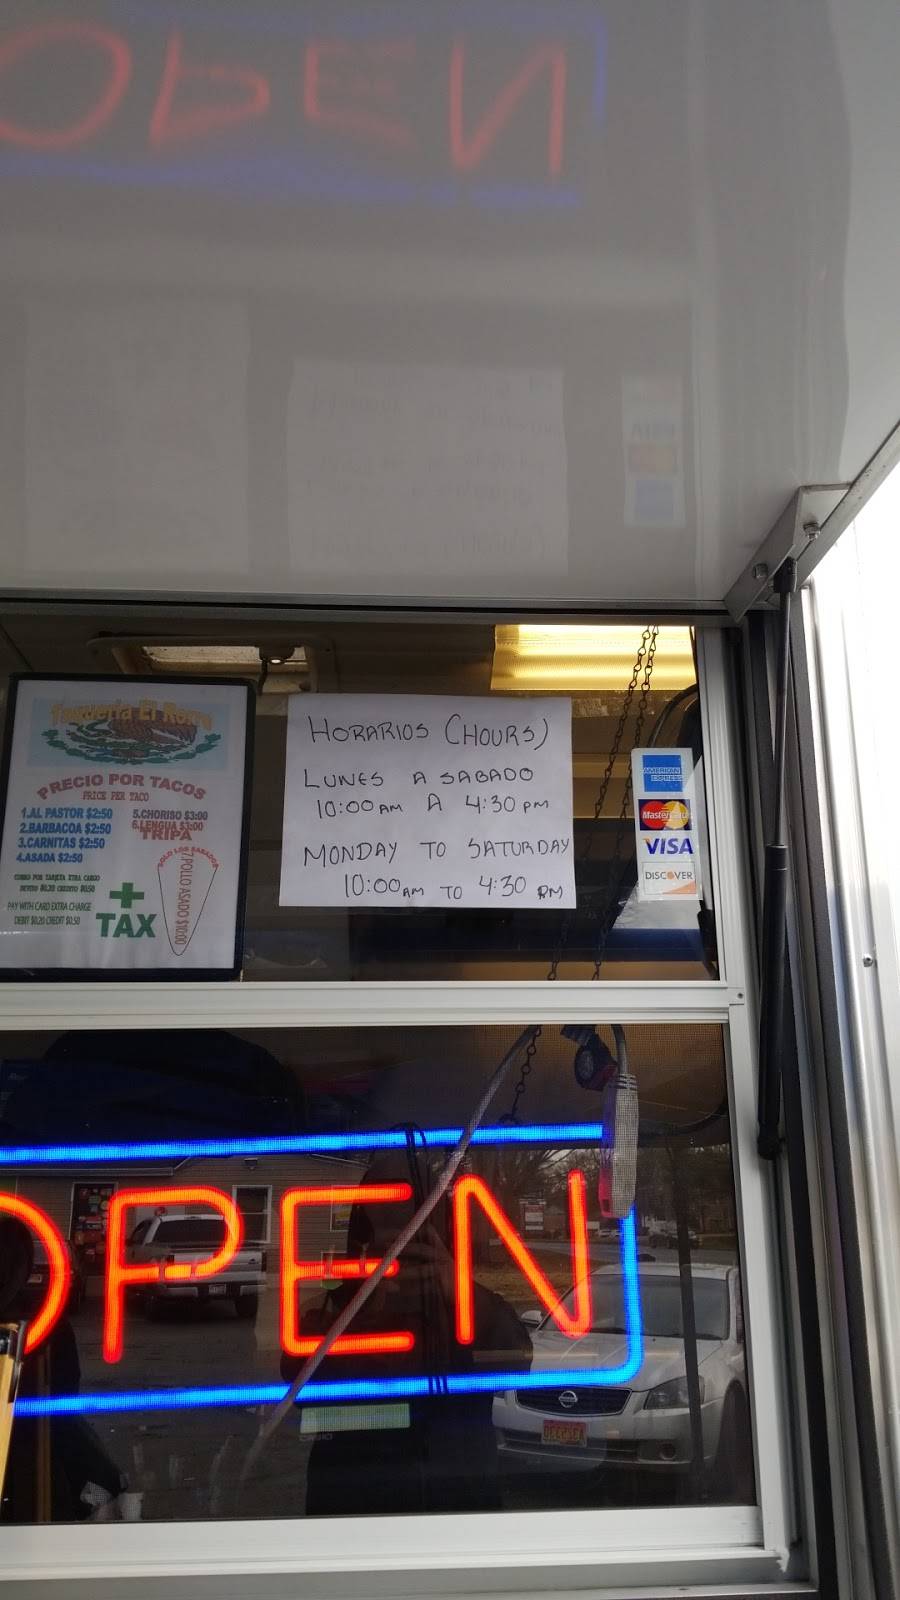 OPEN
Taqueria El Rorro
PRECIO POR TACOS
PRICE PER TACO
1.AL PASTOR $2:50
2.BARBACOA $2:50
3.CARNITAS $2:50
4.ASADA $2:50
5.CHORISO $3:00
6.LENGUA $3:00
TRIPA
SOLO LOS SABADOS
7.POLLO ASADO $10:00
COBRO POR TARJETA XTRA CARGO
DEVITO $0.20 CREDITO $0.50
PAY WITH CARD EXTRA CHARGE
DEBIT $0.20 CREDIT $0.50
+
TAX
HORARIOS (HOURS)
LUNES A SABADO
10:00 AM A 4:30 PM
MONDAY TO SATURDAY
10:00 AM TO 4:30 PM
AMERICAN
EXPRESS
MasterCard
VISA
DISCOVER
OPEN